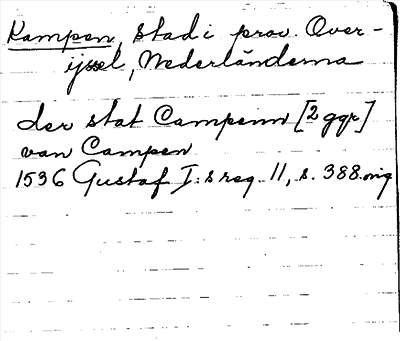 Kampen, stad i prov. Over-
ijssel, Nederländerna
der stat Campenn [2 ggr]
van Campen
1536 Gustaf I:s reg. 11, s. 388. orig